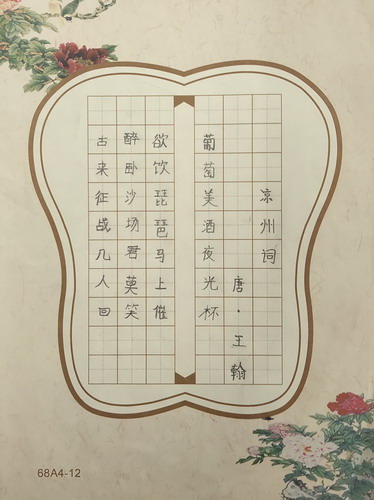 凉州词
唐·王翰
葡萄美酒夜光杯
欲饮琵琶马上催
醉卧沙场君莫笑
古来征战几人回
68A4-12